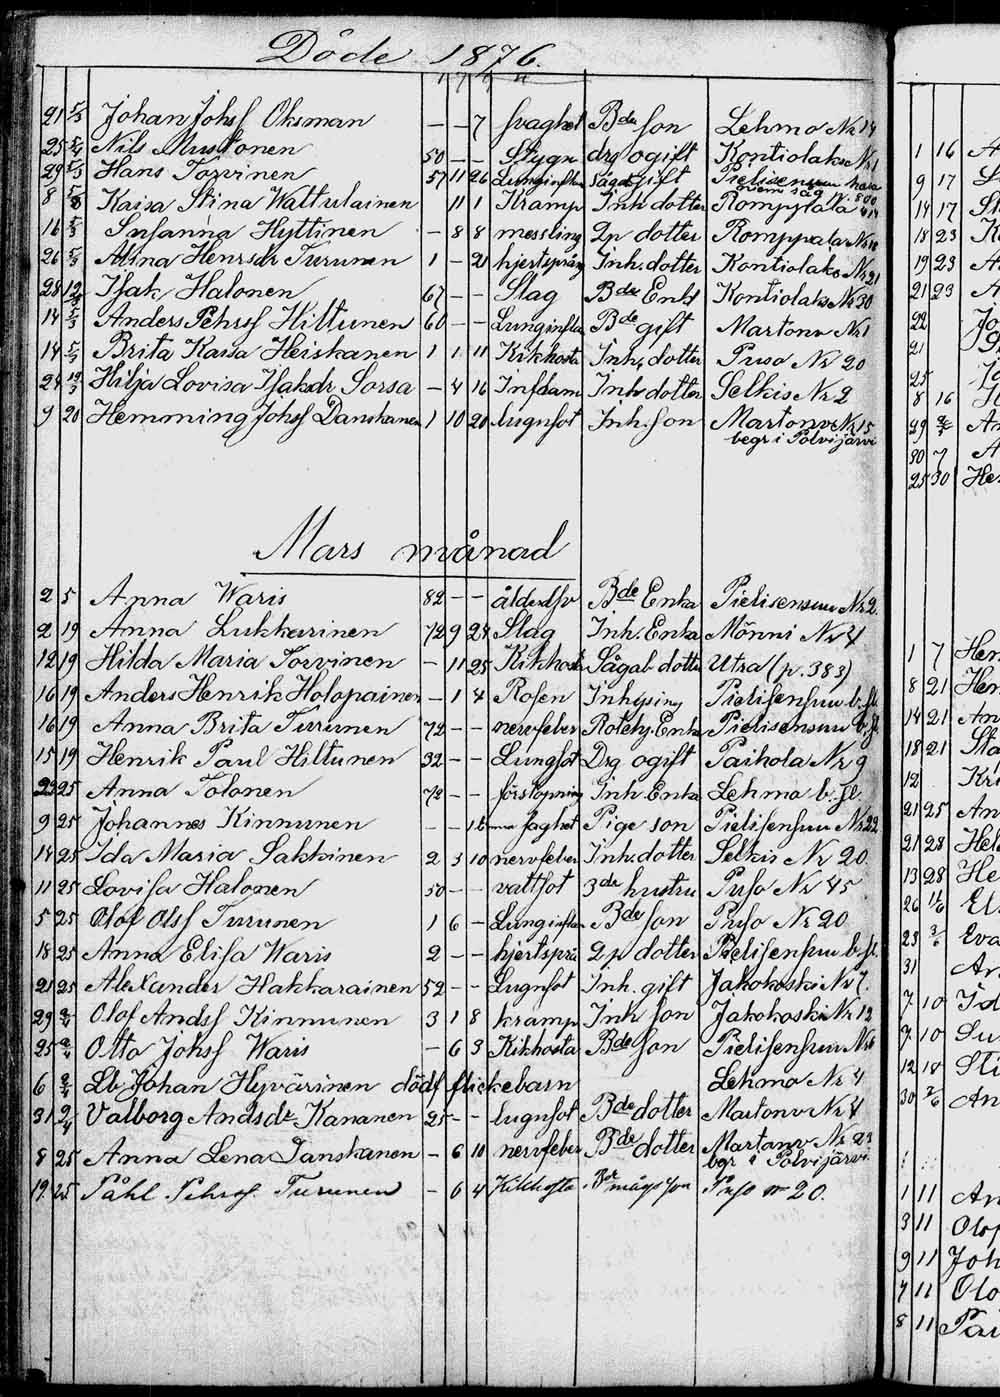 Döde 1876.
21 5/3 Johan Johsf Oksman – – 7 svaghet Bde son Lehmo No 14
25 5/3 Nils Mustonen 50 – – Stygn drg ogift Kontiolaks No 1
29 5/3 Hans Torvinen 57 11 26 Lunginflam Sågab gift Pielisensuu
8 5/3 Kaisa Stina Wattulainen – 11 1 Kramp Inh dotter Romppala No 14
16 5/3 Susanna Hyttinen – 8 8 messling Lp dotter Romppala No
26 5/3 Anna Henrsdr Turunen 1 – 21 hjertsprång Inh. dotter Kontiolaks No 21
28 12/3 Isak Halonen 67 – – Slag Bde Enkl Kontiolaks No 30
14 5/3 Anders Pehrsf Hiltunen 60 – – Lunginflam Bde gift Martonv No 1
14 5/3 Brita Kaisa Heiskanen 1 1 11 Kikhosta Inh. dotter Puso No 20
24 19/3 Hilja Lovisa Isakdr Sorsa – 4 16 Inflam Inh dotter Selkis No 2
9 20 Hemming Johsf Danskanen 1 10 20 lugnsot Inh. son Martonv No 15
begr i Polvijärvi
Mars månad
2 5 Anna Waris 82 – – ålderdsv Bde Enka Pielisensuu No 2.
2 19 Anna Lukkarinen 72 9 28 Slag Inh. Enka Mönni No 4
12 19 Hilda Maria Torvinen – 11 25 Kikhosta Sågab dotter Utra (p. 383)
16 19 Anders Henrik Holopainen – 1 4 Rosen Inhysing Pielisensuu b. fl.
16 19 Anna Brita Turunen 72 – – nervfeber Rotehj. Enka Pielisensuu b. fl.
15 19 Henrik Paul Hiltunen 32 – – Lungsot Drg ogift Paihola No 9
23 25 Anna Tolonen 72 – – förstopning Inh Enka Lehmo b. fl.
9 25 Johannes Kinnunen – – Pige son Pielisensuu No 22
14 25 Ida Maria Sakkinen 2 3 10 nervfeber Inh. dotter Selkis No 20.
11 25 Lovisa Halonen 50 – – vattsot Bde hustru Puso No 45
5 25 Olof Olsf Turunen 1 6 – Lunginflam Bde son Puso No 20
18 25 Anna Elisa Waris 2 – – hjertsprå Lp dotter Pielisensuu b. fl.
21 25 Alexander Hakkarainen 52 – – Lugnsot Inh. gift Jakokoski No 7.
29 2/4 Olof Andsf Kinnunen 3 1 8 kramp Inh son Jakokoski No 12
25 2/4 Otto Johsf Waris – 6 3 Kikhosta Bde son Pielisensuu No 6
6 2/4 Lb Johan Hyvärinen dödf flickebarn Lehmo No 4
31 2/4 Valborg Andsdr Kananen 25 – – lugnsot Bde dotter Martonv No 4
8 25 Anna Lena Danskanen – 6 10 nervfeber Bde dotter Martonv No 23
begr i Polvijärvi
19 25 Påhl Pehrsf. Turunen – 6 4 Kikhosta Bde mågs son Puso No 20.
1 16
9 17
14 17
18 23
19 23
21 23
22
21
25
8 16
30 7
25 30
1 7
8 21
14 21
18 21
12
21 25
21 28
13 28
26
23
31
7 10
7 10
12 18
30
1 11
3 11
9 11
7 11
8 11